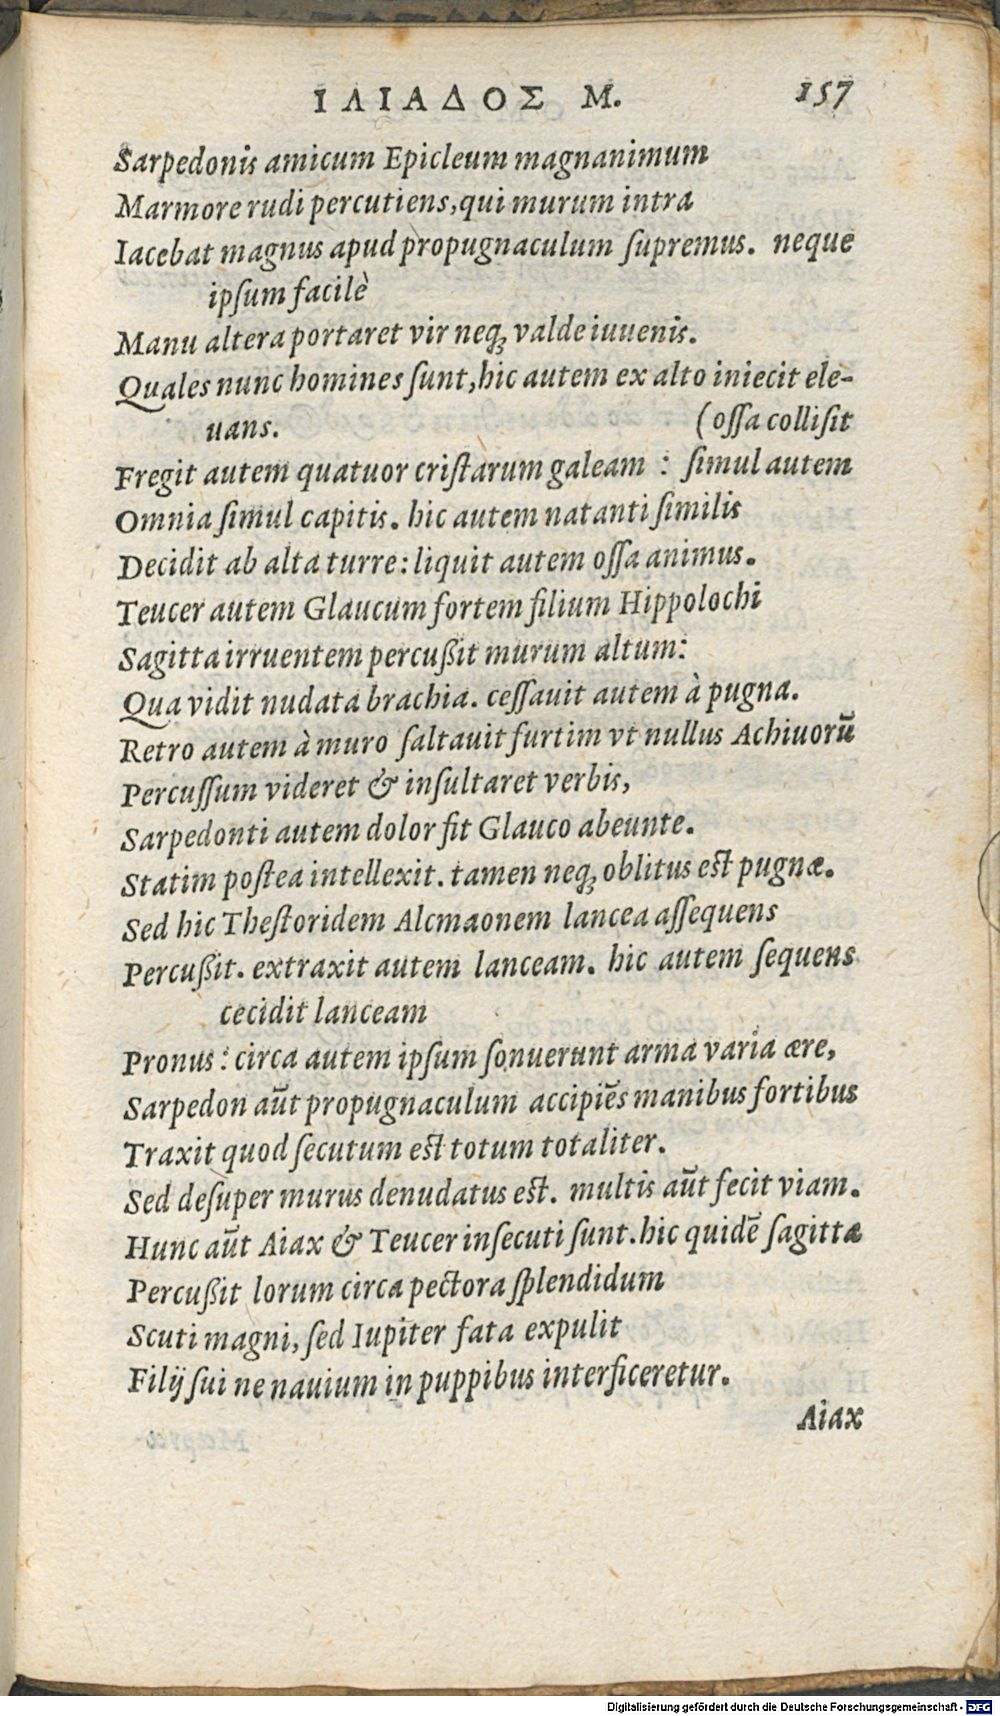 ΙΛΙΑΔΟΣ Μ. 157
Sarpedonis amicum Epicleum magnanimum
Marmore rudi percutiens, qui murum intra
Iacebat magnus apud propugnaculum ſupremus. neque
ipſum facilè
Manu altera portaret vir neqꝫ valde iuuenis.
Quales nunc homines ſunt, hic autem ex alto iniecit ele-
uans. (oſſa colliſit
Fregit autem quatuor criſtarum galeam : ſimul autem
Omnia ſimul capitis. hic autem natanti ſimilis
Decidit ab alta turre: liquit autem oſſa animus.
Teucer autem Glaucum fortem filium Hippolochi
Sagitta irruentem percußit murum altum:
Qua vidit nudata brachia. ceſſauit autem à pugna.
Retro autem à muro ſaltauit furtim vt nullus Achiuorũ
Percuſſum videret & inſultaret verbis,
Sarpedonti autem dolor fit Glauco abeunte.
Statim poſtea intellexit. tamen neqꝫ oblitus eſt pugnæ.
Sed hic Theſtoridem Alcmaonem lancea aſſequens
Percußit. extraxit autem lanceam. hic autem ſequens
cecidit lanceam
Pronus: circa autem ipſum ſonuerunt arma varia ære,
Sarpedon aũt propugnaculum accipiẽs manibus fortibus
Traxit quod ſecutum eſt totum totaliter.
Sed deſuper murus denudatus eſt. multis aũt fecit viam.
Hunc aũt Aiax & Teucer inſecuti ſunt. hic quidẽ ſagitta
Percußit lorum circa pectora ſplendidum
Scuti magni, ſed Iupiter fata expulit
Filij ſui ne nauium in puppibus interficeretur.
Aiax
Digitalisierung gefördert durch die Deutsche Forschungsgemeinschaft - DFG